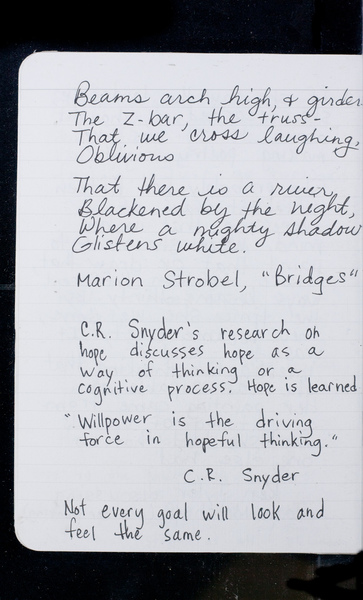 Beams arch high, & girder
The Z-bar, the truss-
That we cross laughing,
Oblivious
That there is a river,
Blackened by the night,
Where a mighty shadow
Glistens white.
Marion Strobel, "Bridges"
C.R. Snyder's research on
hope discusses hope as a
way of thinking or a
cognitive process. Hope is learned
"Willpower is the driving
force in hopeful thinking."
C.R. Snyder
Not every goal will look and
feel the same.